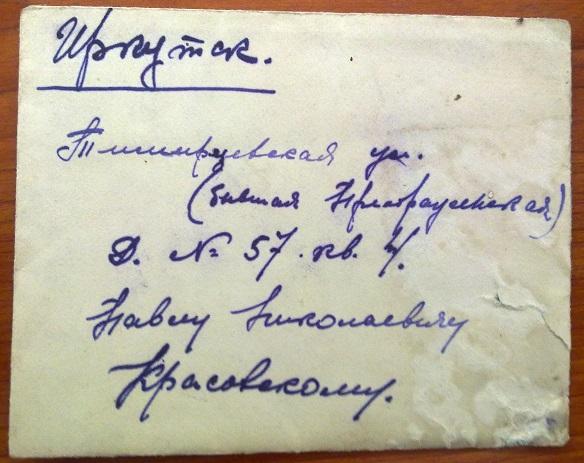 Иркутск.
Тимирязевская ул.
(бывшая Преображенская)
Д. № 57. кв. 4.
Павлу Николаевичу
Красовскому.